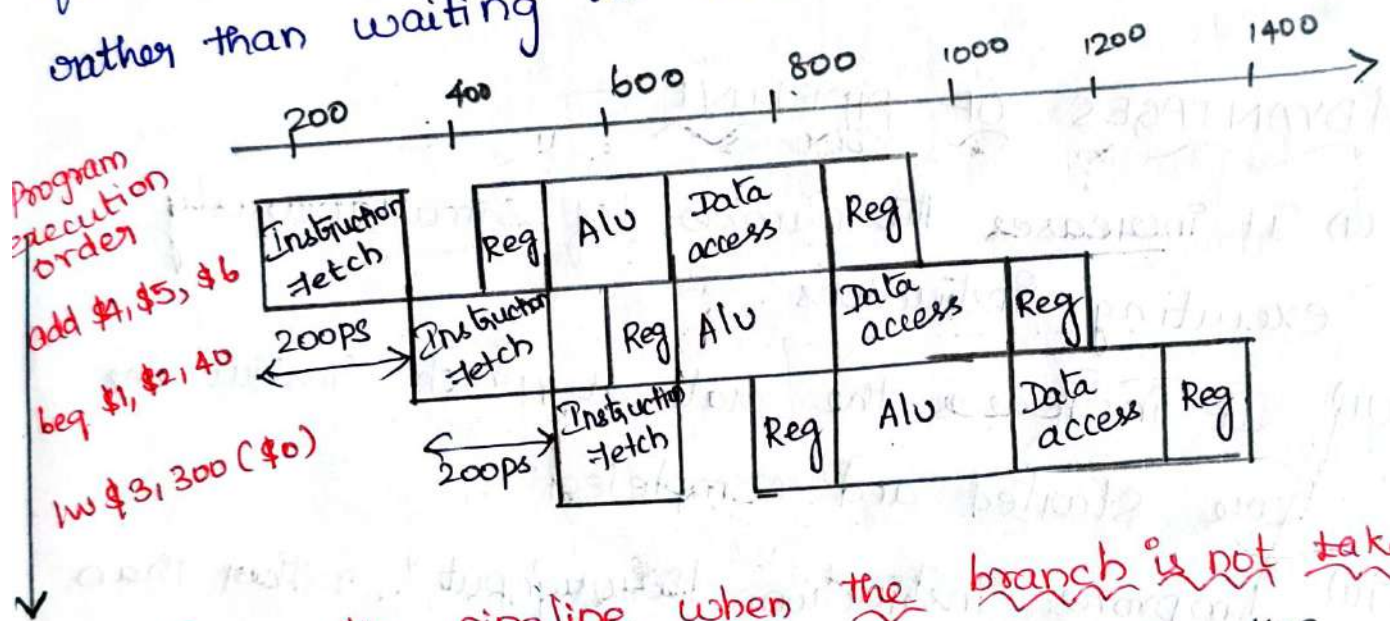 rather than waiting
200 400 600 800 1000 1200 1400
Program
execution
order
add $4, $5, $6
Instruction
Fetch
Reg
Alu
Data
access
Reg
200ps
beq $1, $2, 40
Instruction
Fetch
Reg
Alu
Data
access
Reg
200ps
lw $3, 300 ($0)
Instruction
Fetch
Reg
Alu
Data
access
Reg
pipeline when the branch is not